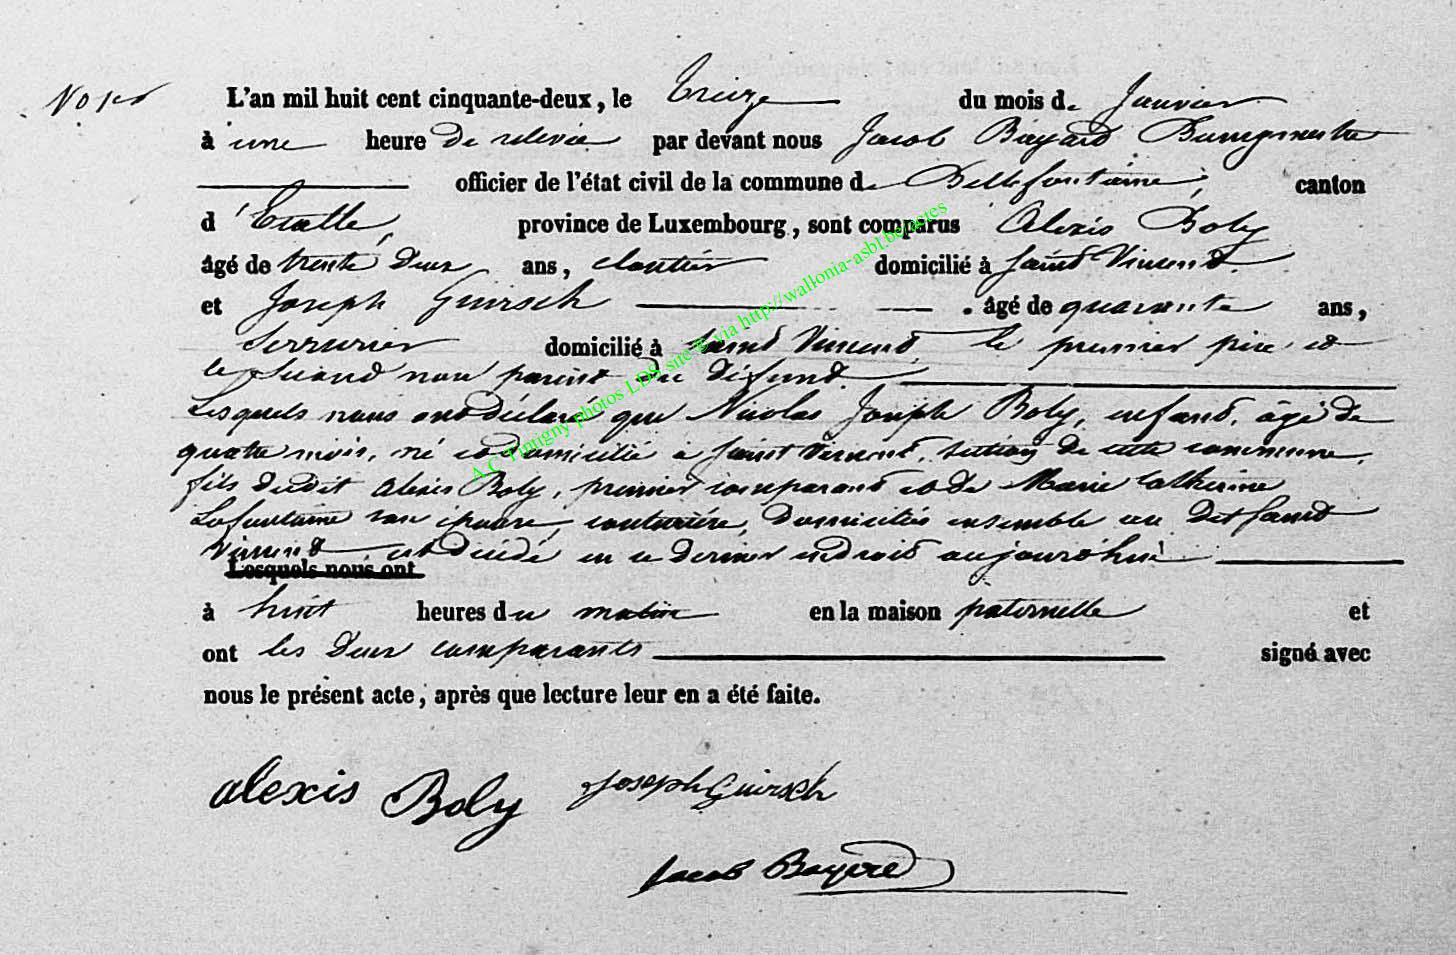 No 1er
L'an mil huit cent cinquante-deux, le Treize du mois de Janvier
à une heure de relevée par devant nous Jacob Bayard Bourgmestre
officier de l'état civil de la commune de Bellefontaine, canton
d'Etalle, province de Luxembourg, sont comparus Alexis Boly
âgé de trente deux ans, cloutier domicilié à Saint Vincent
et Joseph Guirsch âgé de quarante ans,
Serrurier domicilié à Saint Vincent, le premier père et
le second non parent du défunt.
Lesquels nous ont déclaré que Nicolas Joseph Boly, enfant, âgé de
quatre mois, né et domicilié à Saint Vincent, section de cette commune,
fils dudit Alexis Boly, premier comparant et de Marie Catherine
Lafontaine son épouse, couturière, domiciliés ensemble au dit Saint
Vincent, est décédé en ce dernier endroit aujourd'hui
Lesquels nous ont
à huit heures du matin en la maison paternelle et
ont les deux comparants signé avec
nous le présent acte, après que lecture leur en a été faite.
alexis Boly Joseph Guirsch
Jacob Bayard
A.C Tintigny photos LDS, site © via http://wallonia-asbl.be/actes